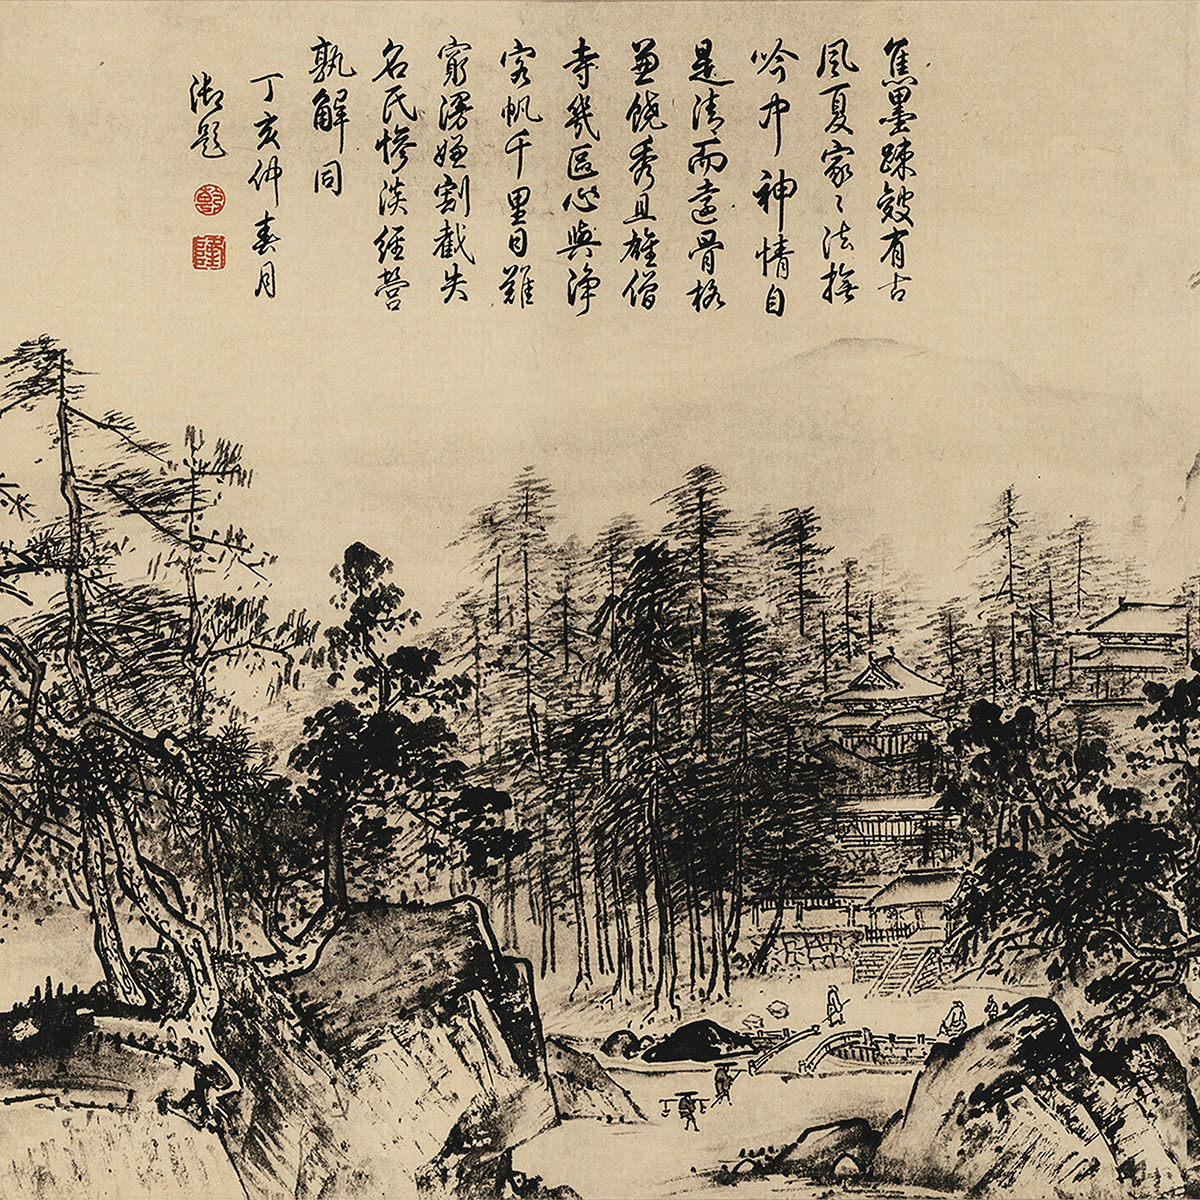 焦墨踈皴有古
風夏家〻法撫
吟中神情自
是清而遠骨格
兼饒秀且雄僧
寺幾區心與淨
客帆千里目難
窮漫嫌割截失
名氏慘淡經營
孰解同
丁亥仲春月
御題
乾
隆